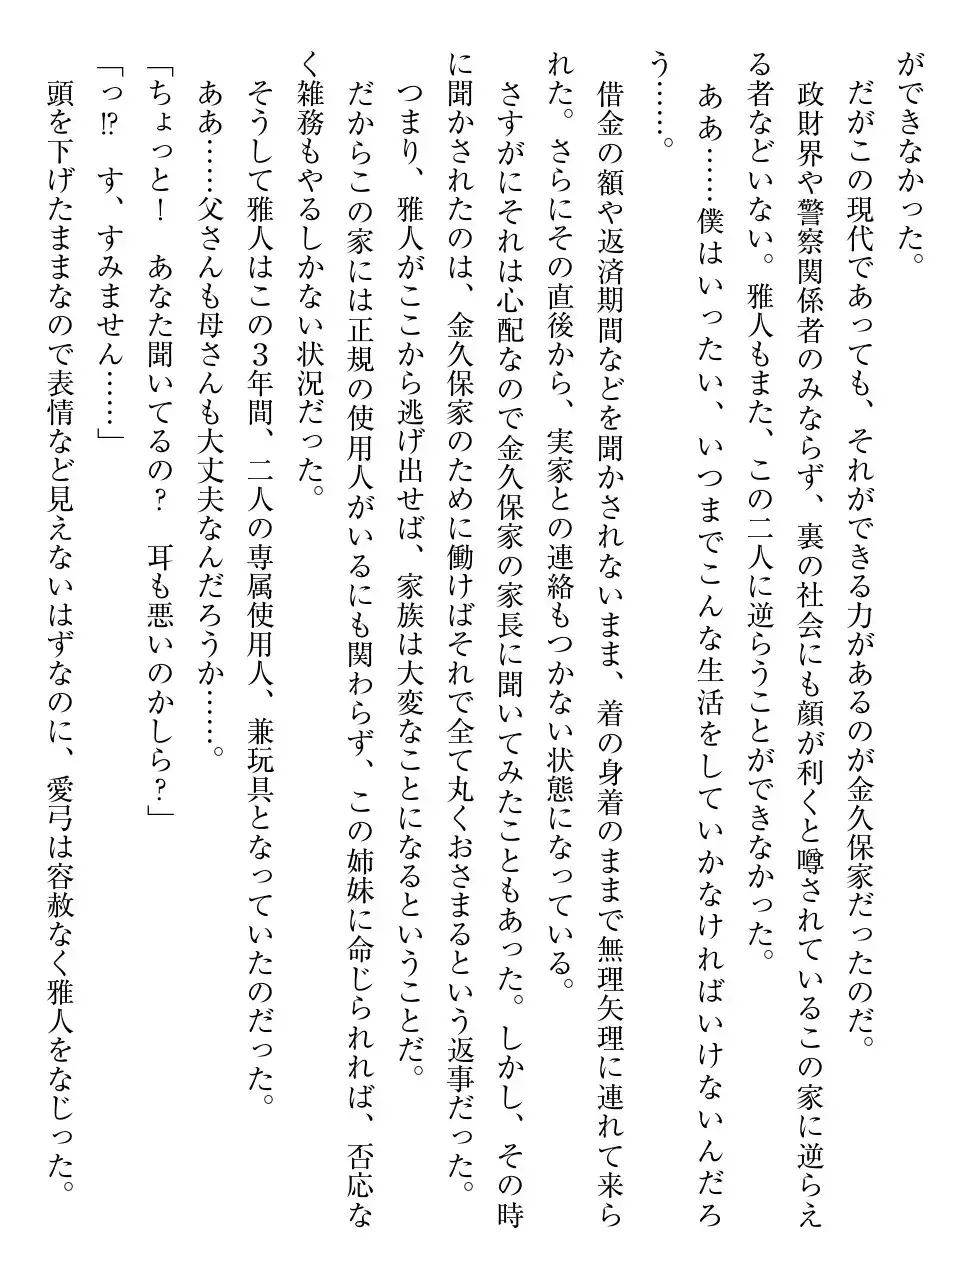 ができなかった。
だがこの現代であっても、それができる力があるのが金久保家だったのだ。
政財界や警察関係者のみならず、裏の社会にも顔が利くと噂されているこの家に逆らえ
る者などいない。雅人もまた、この二人に逆らうことができなかった。
ああ……僕はいったい、いつまでこんな生活をしていかなければいけないんだろ
う……。
借金の額や返済期間などを聞かされないまま、着の身着のままで無理矢理に連れて来ら
れた。さらにその直後から、実家との連絡もつかない状態になっている。
さすがにそれは心配なので金久保家の家長に聞いてみたこともあった。しかし、その時
に聞かされたのは、金久保家のために働けばそれで全て丸くおさまるという返事だった。
つまり、雅人がここから逃げ出せば、家族は大変なことになるということだ。
だからこの家には正規の使用人がいるにも関わらず、この姉妹に命じられれば、否応な
く雑務もやるしかない状況だった。
そうして雅人はこの３年間、二人の専属使用人、兼玩具となっていたのだった。
ああ……父さんも母さんも大丈夫なんだろうか……。
「ちょっと！　あなた聞いてるの？　耳も悪いのかしら？」
「っ!?　す、すみません……」
頭を下げたままなので表情など見えないはずなのに、愛弓は容赦なく雅人をなじった。